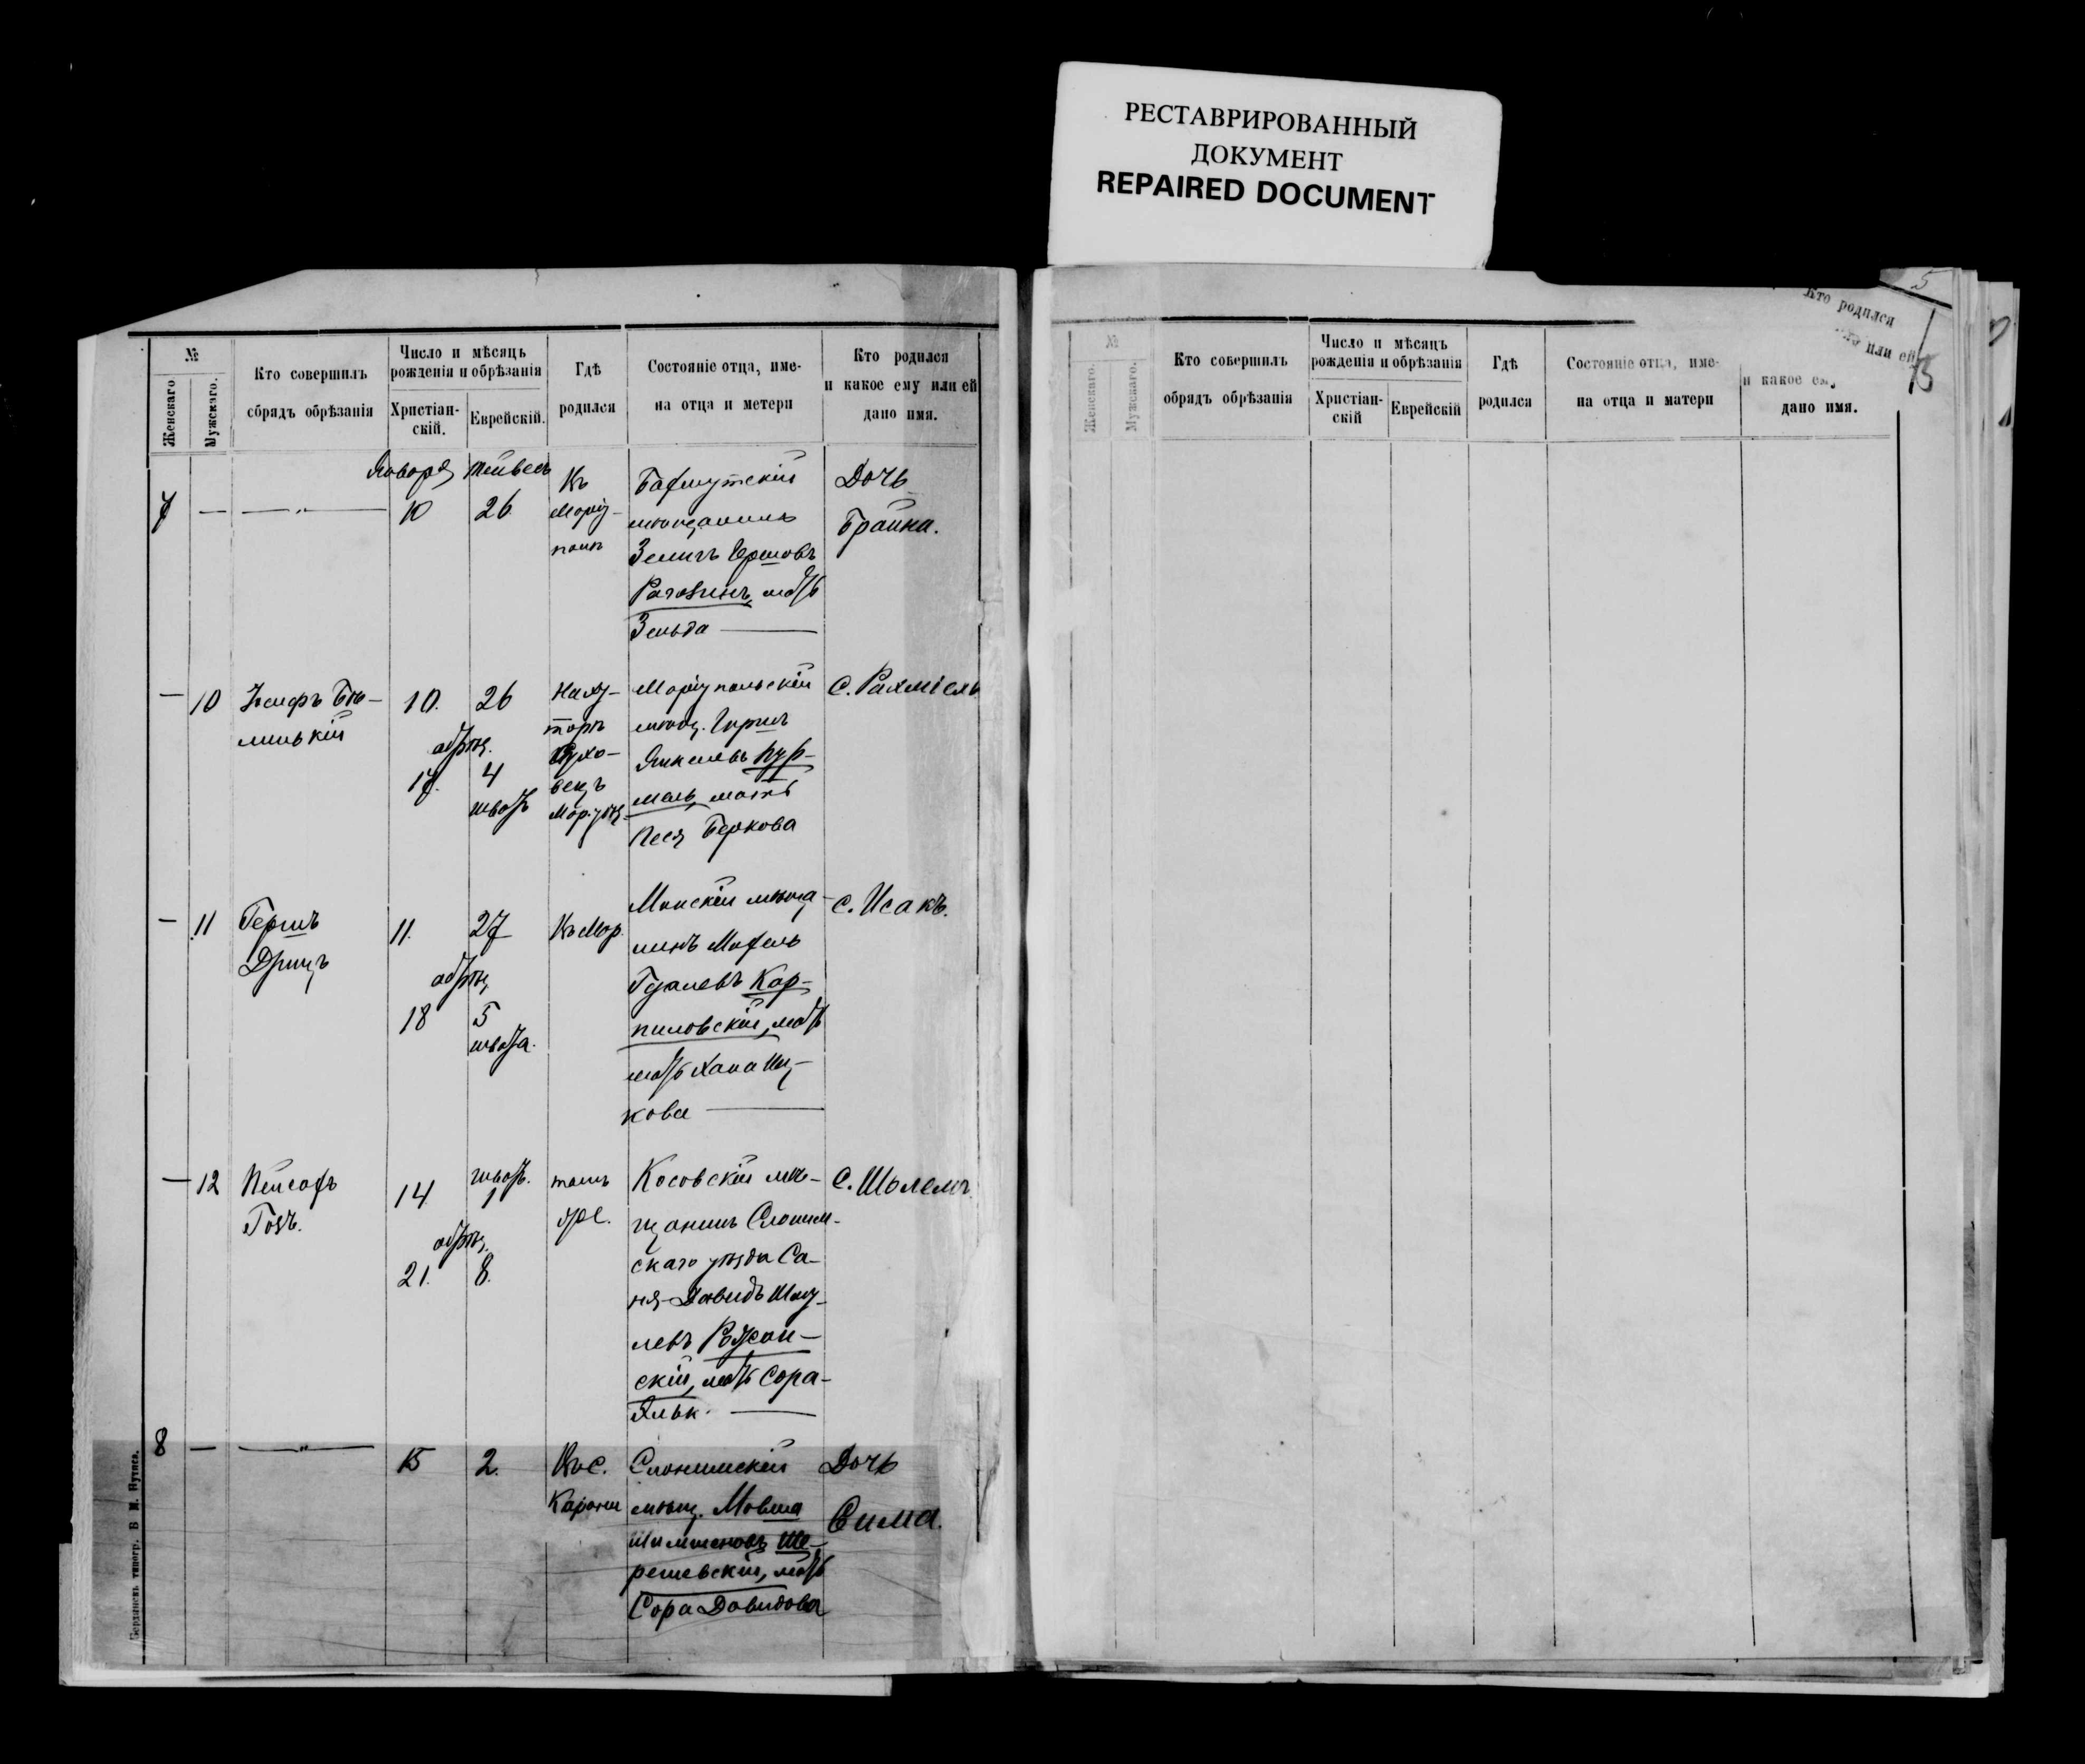 РЕСТАВРИРОВАННЫЙ
ДОКУМЕНТ
REPAIRED DOCUMENT
№
Женскаго
Мужскаго.
Кто совершилъ
обрядъ обрѣзанія
Число и мѣсяцъ
рожденія и обрѣзанія
Христіан-
скій.
Еврейскій.
Гдѣ
родился
Состояніе отца, име-
на отца и метери
Кто родился
и какое ему или ей
дано имя.
7 — —„—
Января
10
Тейвесъ
26
Въ
Маріу-
поли
Бахмутскій
мѣщанинъ
Зеликъ Гершовъ
Рагозинъ, мать
Зельда —
Дочь
Брайна.
— 10
Іосифъ
10.
обрѣз.
17.
26
4
шватъ
На ху-
торѣ
Маріупольскій
мѣщ. Гиршъ
Янкелевъ
мать
Песя Беркова
С. Рахміель
— 11
Гершъ
Дрицъ
11.
обрѣз.
18
27
5
швата.
Въ Мар.
Минскій мѣща-
нинъ
Кар-
пиловскій, мать
мать Хана Иц-
кова —
С. Исакъ.
— 12
Пейсахъ
Гозъ.
14
обрѣз.
21.
шватъ.
1
8.
тамъ
же.
Косовскій мѣ-
щанинъ Слоним-
скаго уѣзда Са-
ня-Давидъ Шму-
левъ Ружан-
скій, мать Сора-
С. Шолемъ.
8 — —„—
15
2.
Въ с.
Слонимскій
мѣщ. Мовша
Шимшеновъ Ше-
решевскій, мать
Сора Давидова
Дочь
Сима.
Бердянскъ типогр.
5
№
Женскаго.
Мужскаго.
Кто совершилъ
обрядъ обрѣзанія
Число и мѣсяцъ
рожденія и обрѣзанія
Христіан-
скій
Еврейскій
Гдѣ
родился
Состояніе отца, име-
на отца и матери
Кто родился
или ей
и какое ему
дано имя.